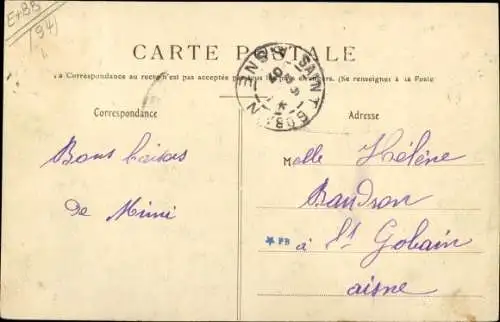 ExBB
(94)
CARTE POSTALE
La Correspondance au recto n'est pas acceptée par tous les pays étrangers. (Se renseigner à la Poste
Correspondance
Adresse
SAINT GOBAIN AISNE
Melle Hélène
Bons baisers
de Mimi
Baudson
PB
à St Gobain
aisne